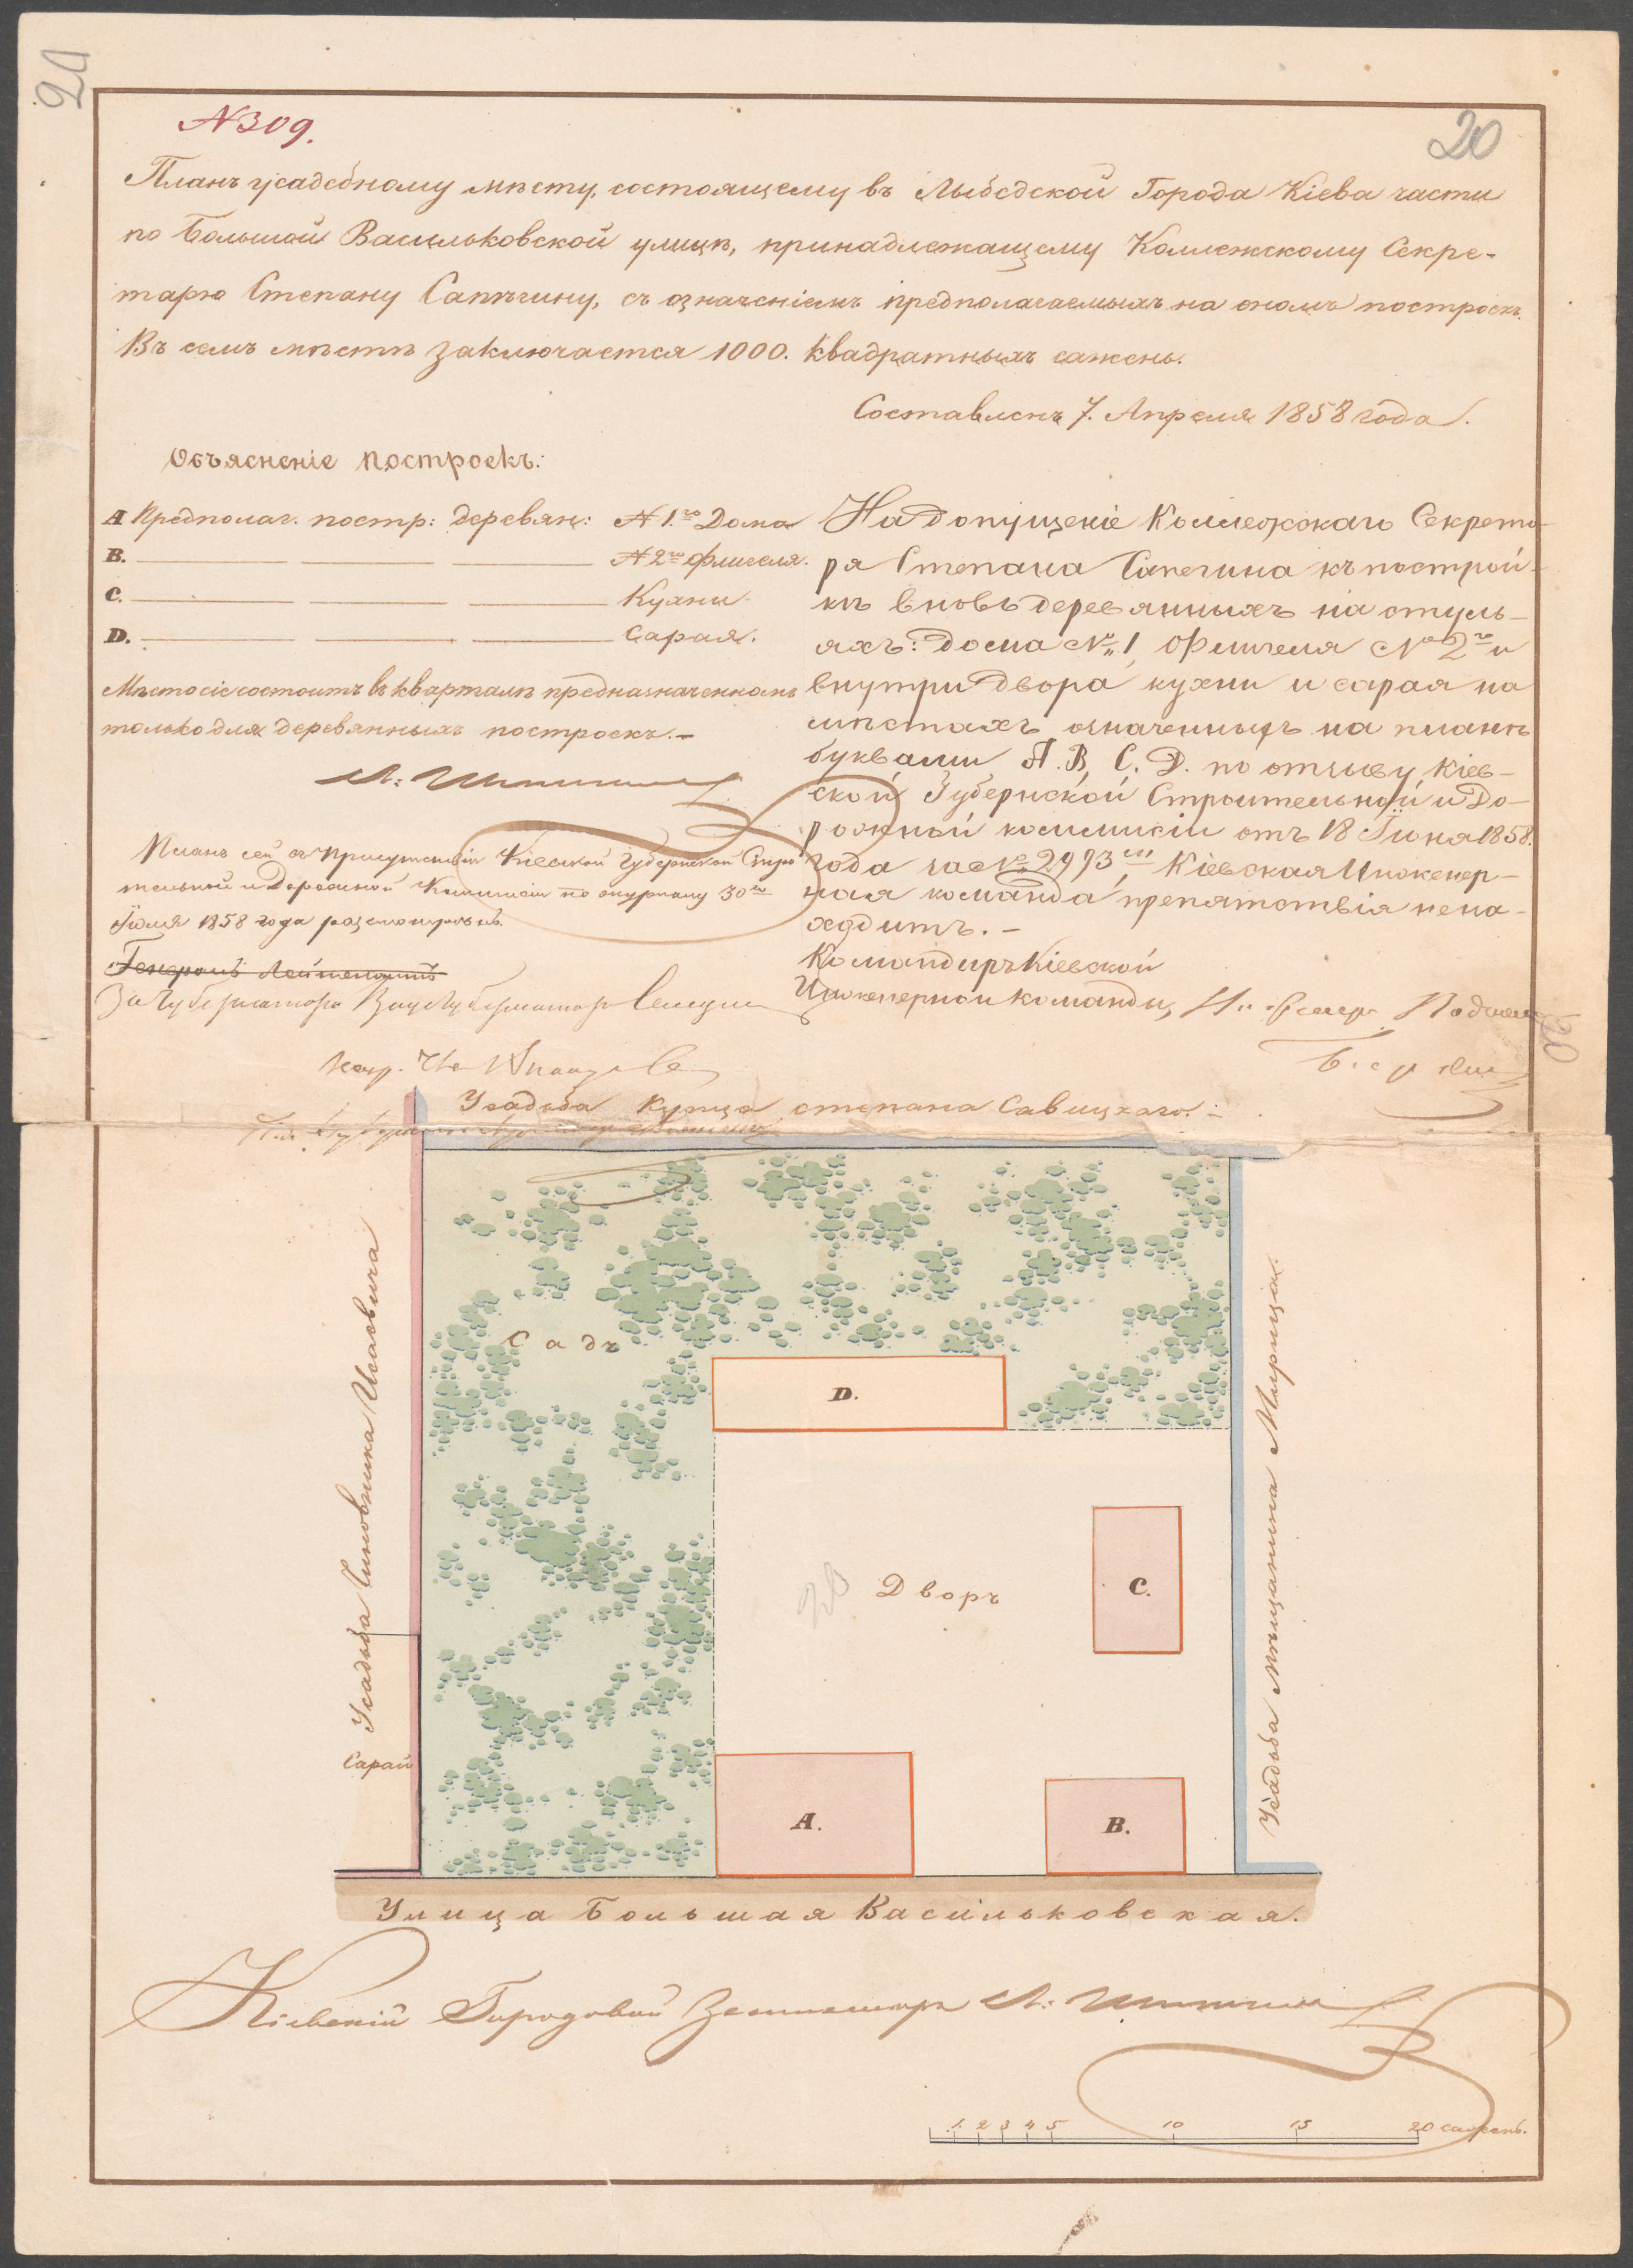 24
20
N 309.
Планъ усадебному мѣсту, состоящему въ Лыбедской Города Кіева части
по Большой Васильковской улицѣ, принадлежащему Коллежскому Секре-
тарю Степану Сапѣгину, съ означеніемъ предполагаемыхъ на ономъ построекъ.
Въ семъ мѣстѣ заключается 1000. квадратныхъ сажень.
Составленъ 7. Апреля 1858 года.
Объясненіе построекъ:
А Предполаг. постр: деревян: N 1.го Дома
В. N 2го флигеля.
С. Кухни.
D. Сарая.
Мѣсто сіе состоитъ въ кварталѣ предназначенномъ
только для деревянныхъ построекъ.-
Планъ сей въ присутствіи Кіевской Губернской Строи
тельной и Дорожной Коммисіи по журналу 30го
Іюля 1858 года разсмотрѣнъ.
Генералъ Лейтенантъ
За Губернатора Вице Губернаторъ
На допущеніе Коллежскаго Секрета-
ря Степана Сапегина къ построй-
кѣ вновь деревянныхъ на стуль-
яхъ: дома № 1, Флигеля № 2го и
внутри двора кухни и сарая на
мѣстахъ означенныхъ на планѣ
буквами А. В, С. D. по отзыву Кіев-
ской Губернской Строительной и До-
рожной коммисіи отъ 18 Іюня 1858.
года за № 2993м, Кіевская Инженер-
ная команда препятствія нена-
ходитъ.-
Командиръ Кіевской
Инженерной команды,
Усадьба Купца степана Савицкаго.-
Усадьба Чиновника Исаевича
Садъ
D.
С.
Дворъ
20
Сарай
А.
В.
Усадьба мѣщанина Мирица.
Улица Большая Васильковская.
Кіевскій Городовой Землемеръ
1 2 3 4 5 10 15 20 сажень.